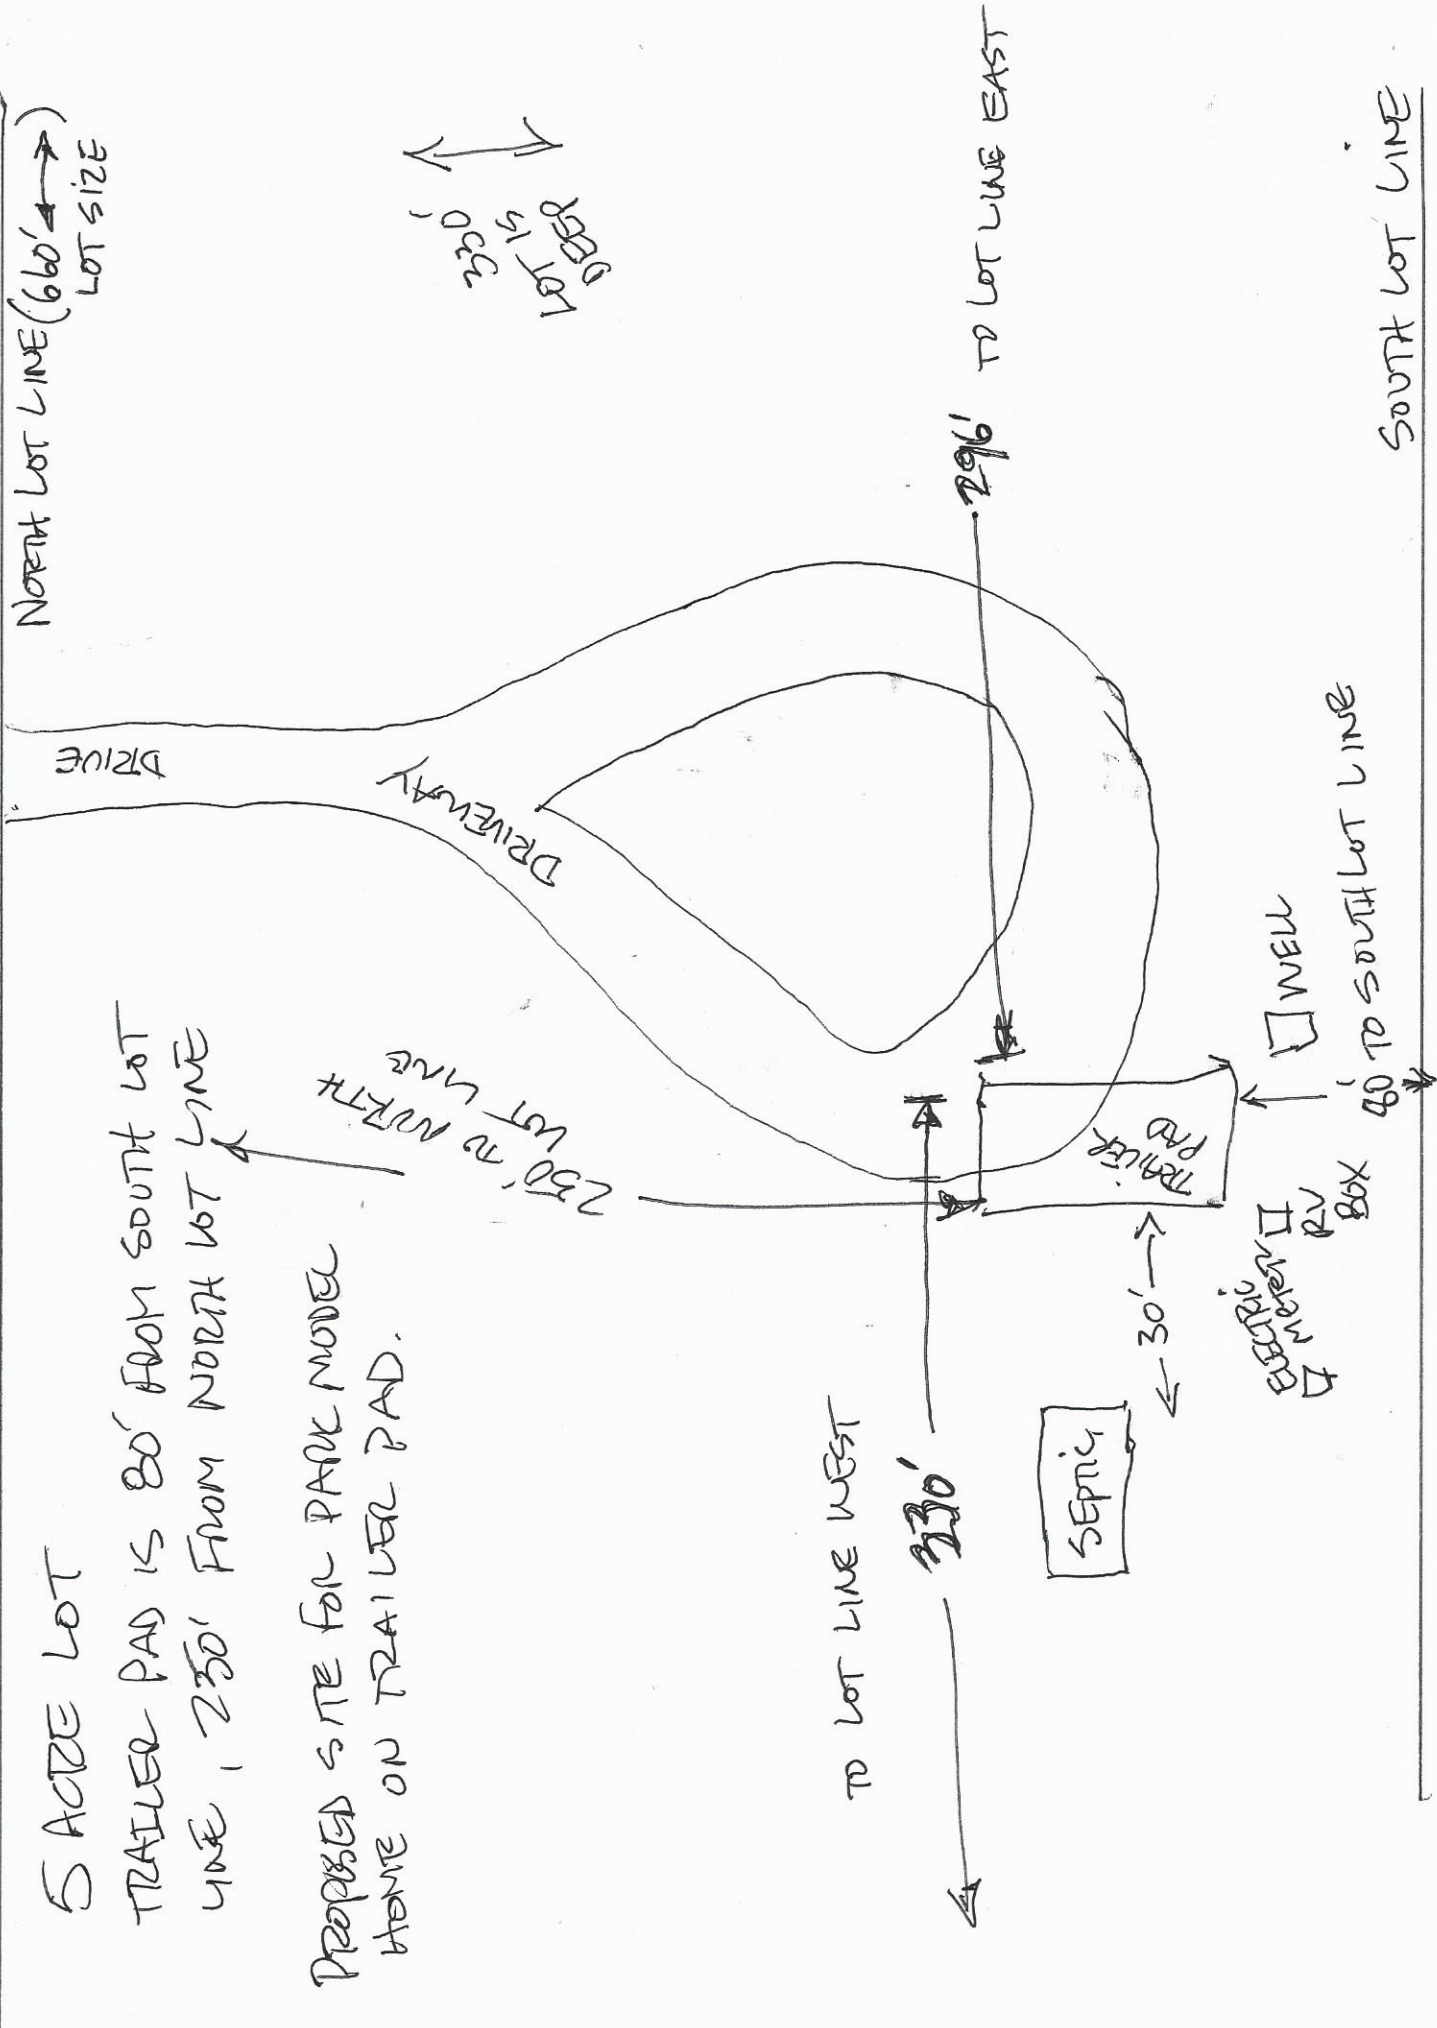 5 ACRE LOT
TRAILER PAD IS 80' FROM SOUTH LOT
LINE, 250' FROM NORTH LOT LINE
PROPOSED SITE FOR PARK MODEL
HOME ON TRAILER PAD.
NORTH LOT LINE (660'
LOT SIZE
DRIVE
DRIVEWAY
330'
LOT IS
DEEP
250' TO NORTH
LOT LINE
TO LOT LINE WEST
330'
296' TO LOT LINE EAST
SEPTIC
30'
TRAILER
PAD
ELECTRIC
METER
RV
BOX
WELL
80' TO SOUTH LOT LINE
SOUTH LOT LINE